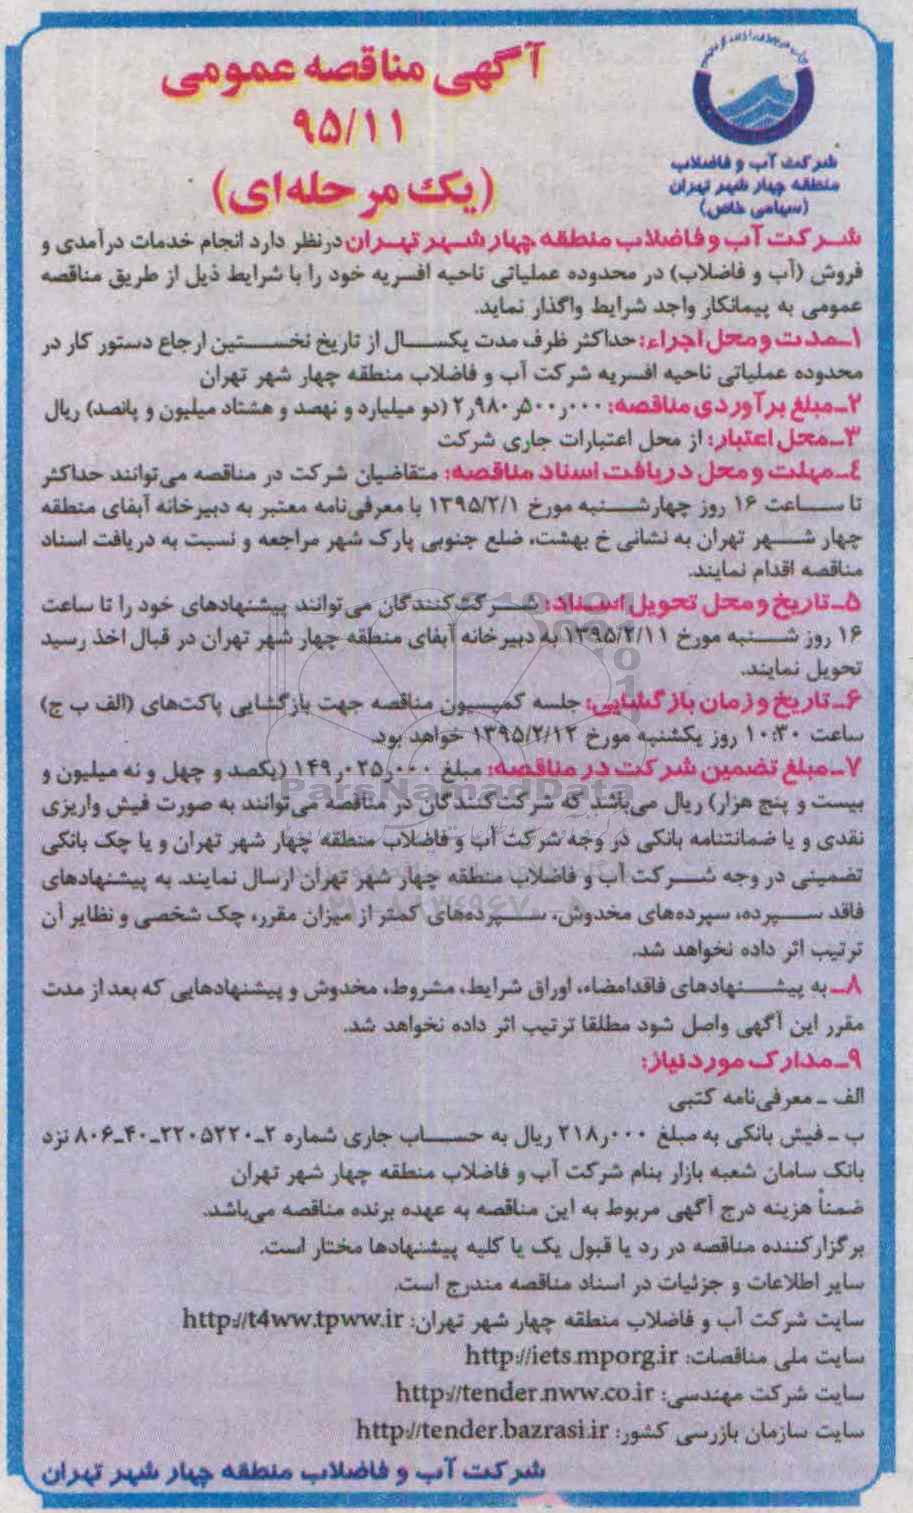 آگهی مناقصه عمومی
۹۵/۱۱
(یک مرحله‌ای)
شرکت آب و فاضلاب
منطقه چهار شهر تهران
(سهامی خاص)
شرکت آب و فاضلاب منطقه چهار شهر تهران درنظر دارد انجام خدمات درآمدی و
فروش (آب و فاضلاب) در محدوده عملیاتی ناحیه افسریه خود را با شرایط ذیل از طریق مناقصه
عمومی به پیمانکار واجد شرایط واگذار نماید.
۱ـ مدت و محل اجراء: حداکثر ظرف مدت یکسال از تاریخ نخستین ارجاع دستور کار در
محدوده عملیاتی ناحیه افسریه شرکت آب و فاضلاب منطقه چهار شهر تهران
۲ـ مبلغ برآوردی مناقصه: ۲٫۹۸۰٫۵۰۰٫۰۰۰ (دو میلیارد و نهصد و هشتاد میلیون و پانصد) ریال
۳ـ محل اعتبار: از محل اعتبارات جاری شرکت
٤ـ مهلت و محل دریافت اسناد مناقصه: متقاضیان شرکت در مناقصه می‌توانند حداکثر
تا ساعت ۱۶ روز چهارشنبه مورخ ۱۳۹۵/۲/۱ با معرفی‌نامه معتبر به دبیرخانه آبفای منطقه
چهار شهر تهران به نشانی خ بهشت، ضلع جنوبی پارک شهر مراجعه و نسبت به دریافت اسناد
مناقصه اقدام نمایند.
۵ـ تاریخ و محل تحویل اسناد: شرکت‌کنندگان می‌توانند پیشنهادهای خود را تا ساعت
۱۶ روز شنبه مورخ ۱۳۹۵/۲/۱۱ به دبیرخانه آبفای منطقه چهار شهر تهران در قبال اخذ رسید
تحویل نمایند.
۶ـ تاریخ و زمان بازگشایی: جلسه کمیسیون مناقصه جهت بازگشایی پاکت‌های (الف ب ج)
ساعت ۱۰:۳۰ روز یکشنبه مورخ ۱۳۹۵/۲/۱۲ خواهد بود.
۷ـ مبلغ تضمین شرکت در مناقصه: مبلغ ۱۴۹٫۰۲۵٫۰۰۰ (یکصد و چهل و نه میلیون و
بیست و پنج هزار) ریال می‌باشد که شرکت‌کنندگان در مناقصه می‌توانند به صورت فیش واریزی
نقدی و یا ضمانتنامه بانکی در وجه شرکت آب و فاضلاب منطقه چهار شهر تهران و یا چک بانکی
تضمینی در وجه شرکت آب و فاضلاب منطقه چهار شهر تهران ارسال نمایند. به پیشنهادهای
فاقد سپرده، سپرده‌های مخدوش، سپرده‌های کمتر از میزان مقرر، چک شخصی و نظایر آن
ترتیب اثر داده نخواهد شد.
۸ـ به پیشنهادهای فاقدامضاء، اوراق شرایط، مشروط، مخدوش و پیشنهادهایی که بعد از مدت
مقرر این آگهی واصل شود مطلقا ترتیب اثر داده نخواهد شد.
۹ـ مدارک موردنیاز:
الف ـ معرفی‌نامه کتبی
ب ـ فیش بانکی به مبلغ ۲۱۸٫۰۰۰ ریال به حساب جاری شماره ۲ـ۲۲۰۵۲۲۰ـ۴۰ـ۸۰۶ نزد
بانک سامان شعبه بازار بنام شرکت آب و فاضلاب منطقه چهار شهر تهران
ضمناً هزینه درج آگهی مربوط به این مناقصه به عهده برنده مناقصه می‌باشد.
برگزارکننده مناقصه در رد یا قبول یک یا کلیه پیشنهادها مختار است.
سایر اطلاعات و جزئیات در اسناد مناقصه مندرج است.
سایت شرکت آب و فاضلاب منطقه چهار شهر تهران: http://t4ww.tpww.ir
سایت ملی مناقصات: http://iets.mporg.ir
سایت شرکت مهندسی: http://tender.nww.co.ir
سایت سازمان بازرسی کشور: http://tender.bazrasi.ir
شرکت آب و فاضلاب منطقه چهار شهر تهران
ParsNamadData